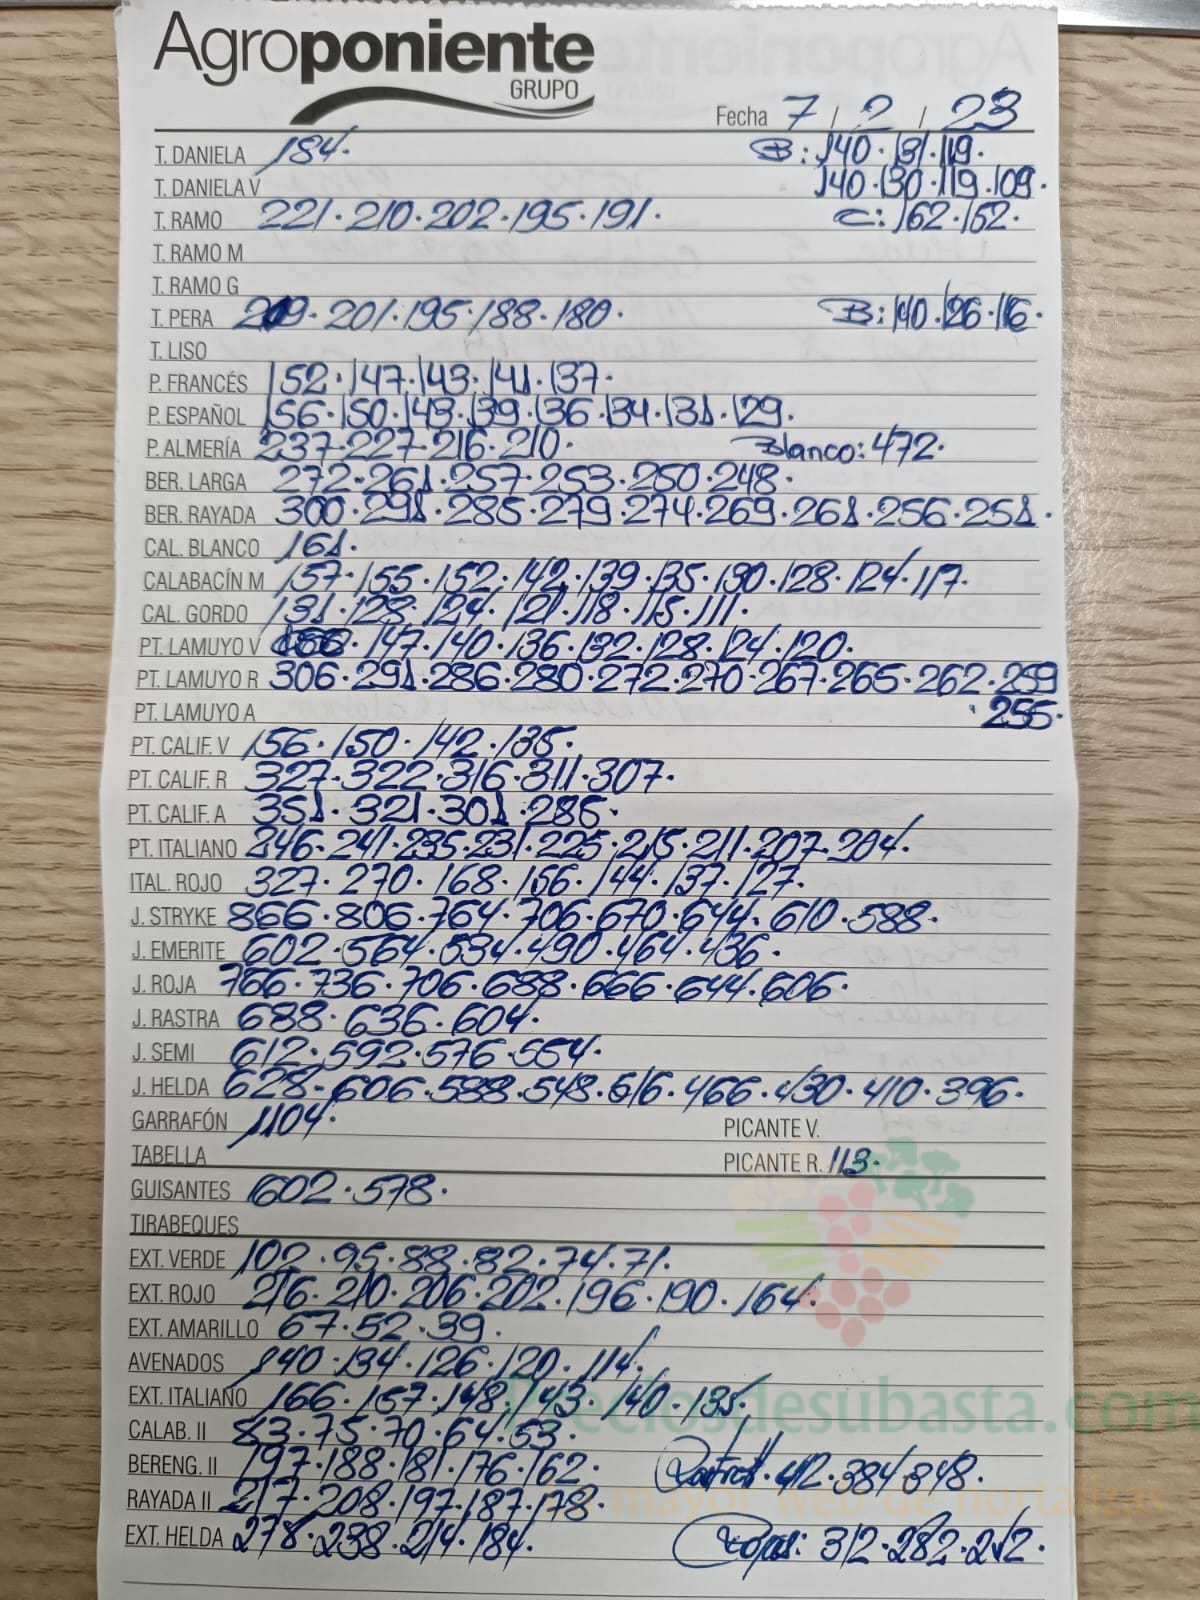 Agroponiente
GRUPO
Fecha 7 / 2 / 23
T. DANIELA 184. B: 140. 131. 119.
T. DANIELA V 140. 130. 119. 109.
T. RAMO 221. 210. 202. 195. 191. C: 162. 152.
T. RAMO M
T. RAMO G
T. PERA 209. 201. 195. 188. 180. B: 140. 126. 116.
T. LISO
P. FRANCÉS 152. 147. 143. 141. 137.
P. ESPAÑOL 156. 150. 143. 139. 136. 134. 131. 129.
P. ALMERÍA 237. 227. 216. 210. Blanco: 472.
BER. LARGA 272. 261. 257. 253. 250. 248.
BER. RAYADA 300. 291. 285. 279. 274. 269. 261. 256. 251.
CAL. BLANCO 161.
CALABACÍN M 157. 155. 152. 142. 139. 135. 130. 128. 124. 117.
CAL. GORDO 131. 128. 124. 121. 118. 115. 111.
PT. LAMUYO V 147. 140. 136. 132. 128. 124. 120.
PT. LAMUYO R 306. 291. 286. 280. 272. 270. 267. 265. 262. 259
PT. LAMUYO A . 255.
PT. CALIF. V 156. 150. 142. 135.
PT. CALIF. R 327. 322. 316. 311. 307.
PT. CALIF. A 351. 321. 301. 286.
PT. ITALIANO 246. 241. 235. 231. 225. 215. 211. 207. 204.
ITAL. ROJO 327. 270. 168. 156. 144. 137. 127.
J. STRYKE 866. 806. 764. 706. 670. 644. 610. 588.
J. EMERITE 602. 564. 534. 490. 464. 436.
J. ROJA 766. 736. 706. 688. 666. 644. 606.
J. RASTRA 688. 636. 604.
J. SEMI 612. 592. 576. 554.
J. HELDA 628. 606. 588. 548. 516. 466. 430. 410. 396.
GARRAFÓN 1104. PICANTE V.
TABELLA PICANTE R. 113.
GUISANTES 602. 578.
TIRABEQUES
EXT. VERDE 102. 95. 88. 82. 74. 71.
EXT. ROJO 216. 210. 206. 202. 196. 190. 164.
EXT. AMARILLO 67. 52. 39.
AVENADOS 140. 134. 126. 120. 114.
EXT. ITALIANO 166. 157. 148. 143. 140. 135.
Preciosdesubasta.com
CALAB. II 83. 75. 70. 64. 53.
BERENG. II 197. 188. 181. 176. 162. 412. 384. 348.
mayor web de hortalizas
RAYADA II 217. 208. 197. 187. 178.
EXT. HELDA 278. 238. 214. 184. 312. 282. 212.